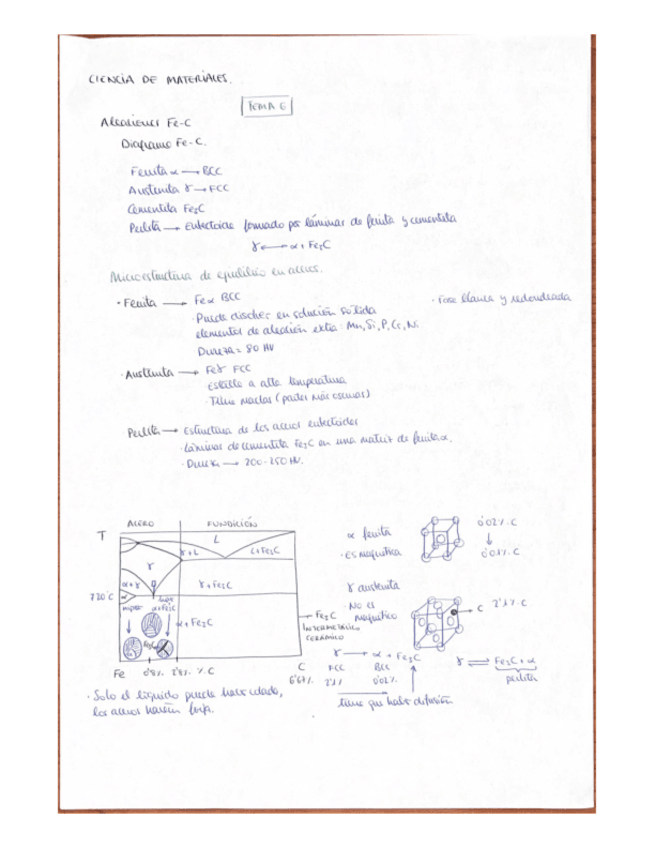 CIENCIA DE MATERIALES.
TEMA 6
Aleaciones Fe-C
Diagrama Fe-C.
Ferrita α → BCC
Austenita γ → FCC
Cementita Fe3C
Perlita → Eutectoide formado por láminas de ferrita y cementita
γ ⟷ α + Fe3C
Microestructura de equilibrio en aceros.
· Ferrita → Feα BCC
· Fase blanca y redondeada
· Puede disolver en solución sólida
elementos de aleación extra: Mn, Si, P, Cr, Ni
Dureza = 80 HV
· Austenita → Feγ FCC
Estable a alta temperatura
· Tiene maclas (partes más oscuras)
Perlita → Estructura de los aceros eutectoides
· Láminas de cementita Fe3C en una matriz de ferrita α.
· Dureza → 200-250 HV.
ACERO FUNDICIÓN
T
L
γ+L L+Fe3C
γ
α+γ γ+Fe3C
720°C α
α+Fe3C
α+Fe3C
Fe3C
Fe 0'8% 2'1% % C C
6'67%
→ Fe3C
INTERMETÁLICO
CERÁMICO
α ferrita
· Es magnética
0'02% C
↓
0'01% C
γ austenita
· No es
magnético
→ C 2'1% C
γ → α + Fe3C
FCC BCC
2'1% 0'02%
tiene que haber difusión
γ ⇌ Fe3C + α
perlita
· Solo el líquido puede haber colada,
los aceros harían forja.